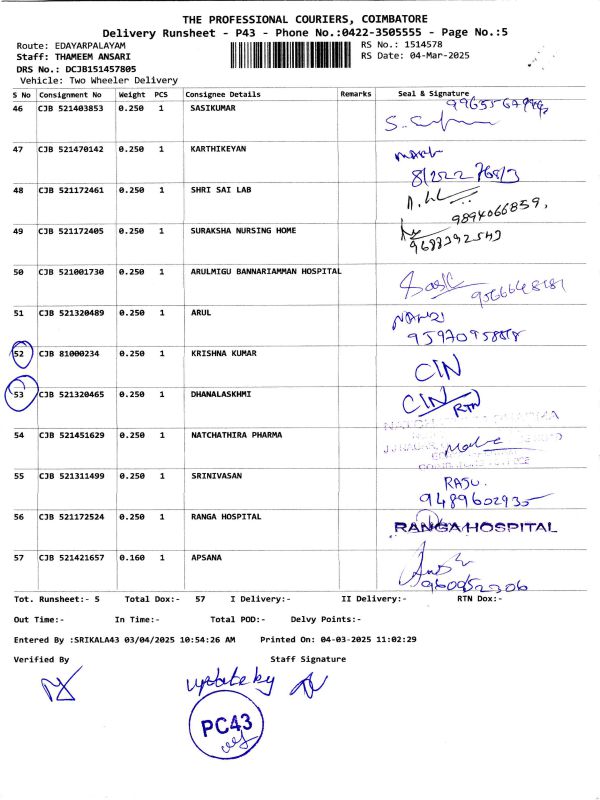 THE PROFESSIONAL COURIERS, COIMBATORE
Delivery Runsheet - P43 - Phone No.:0422-3505555 - Page No.:5
Route: EDAYARPALAYAM
RS No.: 1514578
Staff: THAMEEM ANSARI
RS Date: 04-Mar-2025
DRS No.: DCJB151457805
Vehicle: Two Wheeler Delivery
S No Consignment No Weight PCS Consignee Details Remarks Seal & Signature
46 CJB 521403853 0.250 1 SASIKUMAR
47 CJB 521470142 0.250 1 KARTHIKEYAN
48 CJB 521172461 0.250 1 SHRI SAI LAB
9894066859,
49 CJB 521172405 0.250 1 SURAKSHA NURSING HOME
9688392543
50 CJB 521001730 0.250 1 ARULMIGU BANNARIAMMAN HOSPITAL
51 CJB 521320489 0.250 1 ARUL
52 CJB 81000234 0.250 1 KRISHNA KUMAR CIN
53 CJB 521320465 0.250 1 DHANALASKHMI CIN/RTN
54 CJB 521451629 0.250 1 NATCHATHIRA PHARMA
55 CJB 521311499 0.250 1 SRINIVASAN RAJU.
9489602935
56 CJB 521172524 0.250 1 RANGA HOSPITAL RANGA HOSPITAL
57 CJB 521421657 0.160 1 APSANA
9600952306
Tot. Runsheet:- 5 Total Dox:- 57 I Delivery:- II Delivery:- RTN Dox:-
Out Time:- In Time:- Total POD:- Delvy Points:-
Entered By :SRIKALA43 03/04/2025 10:54:26 AM Printed On: 04-03-2025 11:02:29
Verified By Staff Signature
update by
PC43